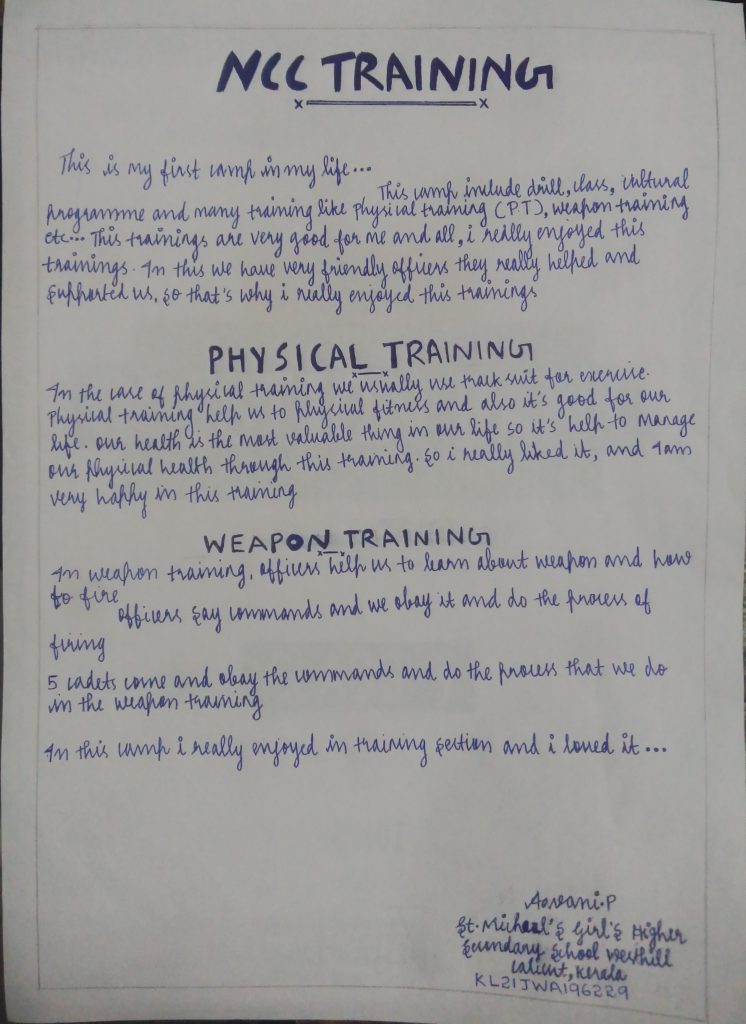 NCC TRAINING
This is my first camp in my life...
This camp include drill, class, cultural
programme and many training like physical training (P.T), weapon training
etc... This trainings are very good for me and all, i really enjoyed this
trainings. In this we have very friendly officers they really helped and
supported us, so that's why i really enjoyed this trainings
PHYSICAL TRAINING
In the case of physical training we usually use track suit for exercise.
Physical training help us to physical fitness and also it's good for our
life. our health is the most valuable thing in our life so it's help to manage
our physical health through this training. So i really liked it, and I am
very happy in this training
WEAPON TRAINING
In weapon training, officers help us to learn about weapon and how
to fire
officers say commands and we obay it and do the process of
firing
5 cadets come and obay the commands and do the process that we do
in the weapon training
In this camp i really enjoyed in training section and i loved it...
Aswani.P
St. Michael's Girl's Higher
Secondary School Westhill
Calicut, Kerala
KL21JWA196229